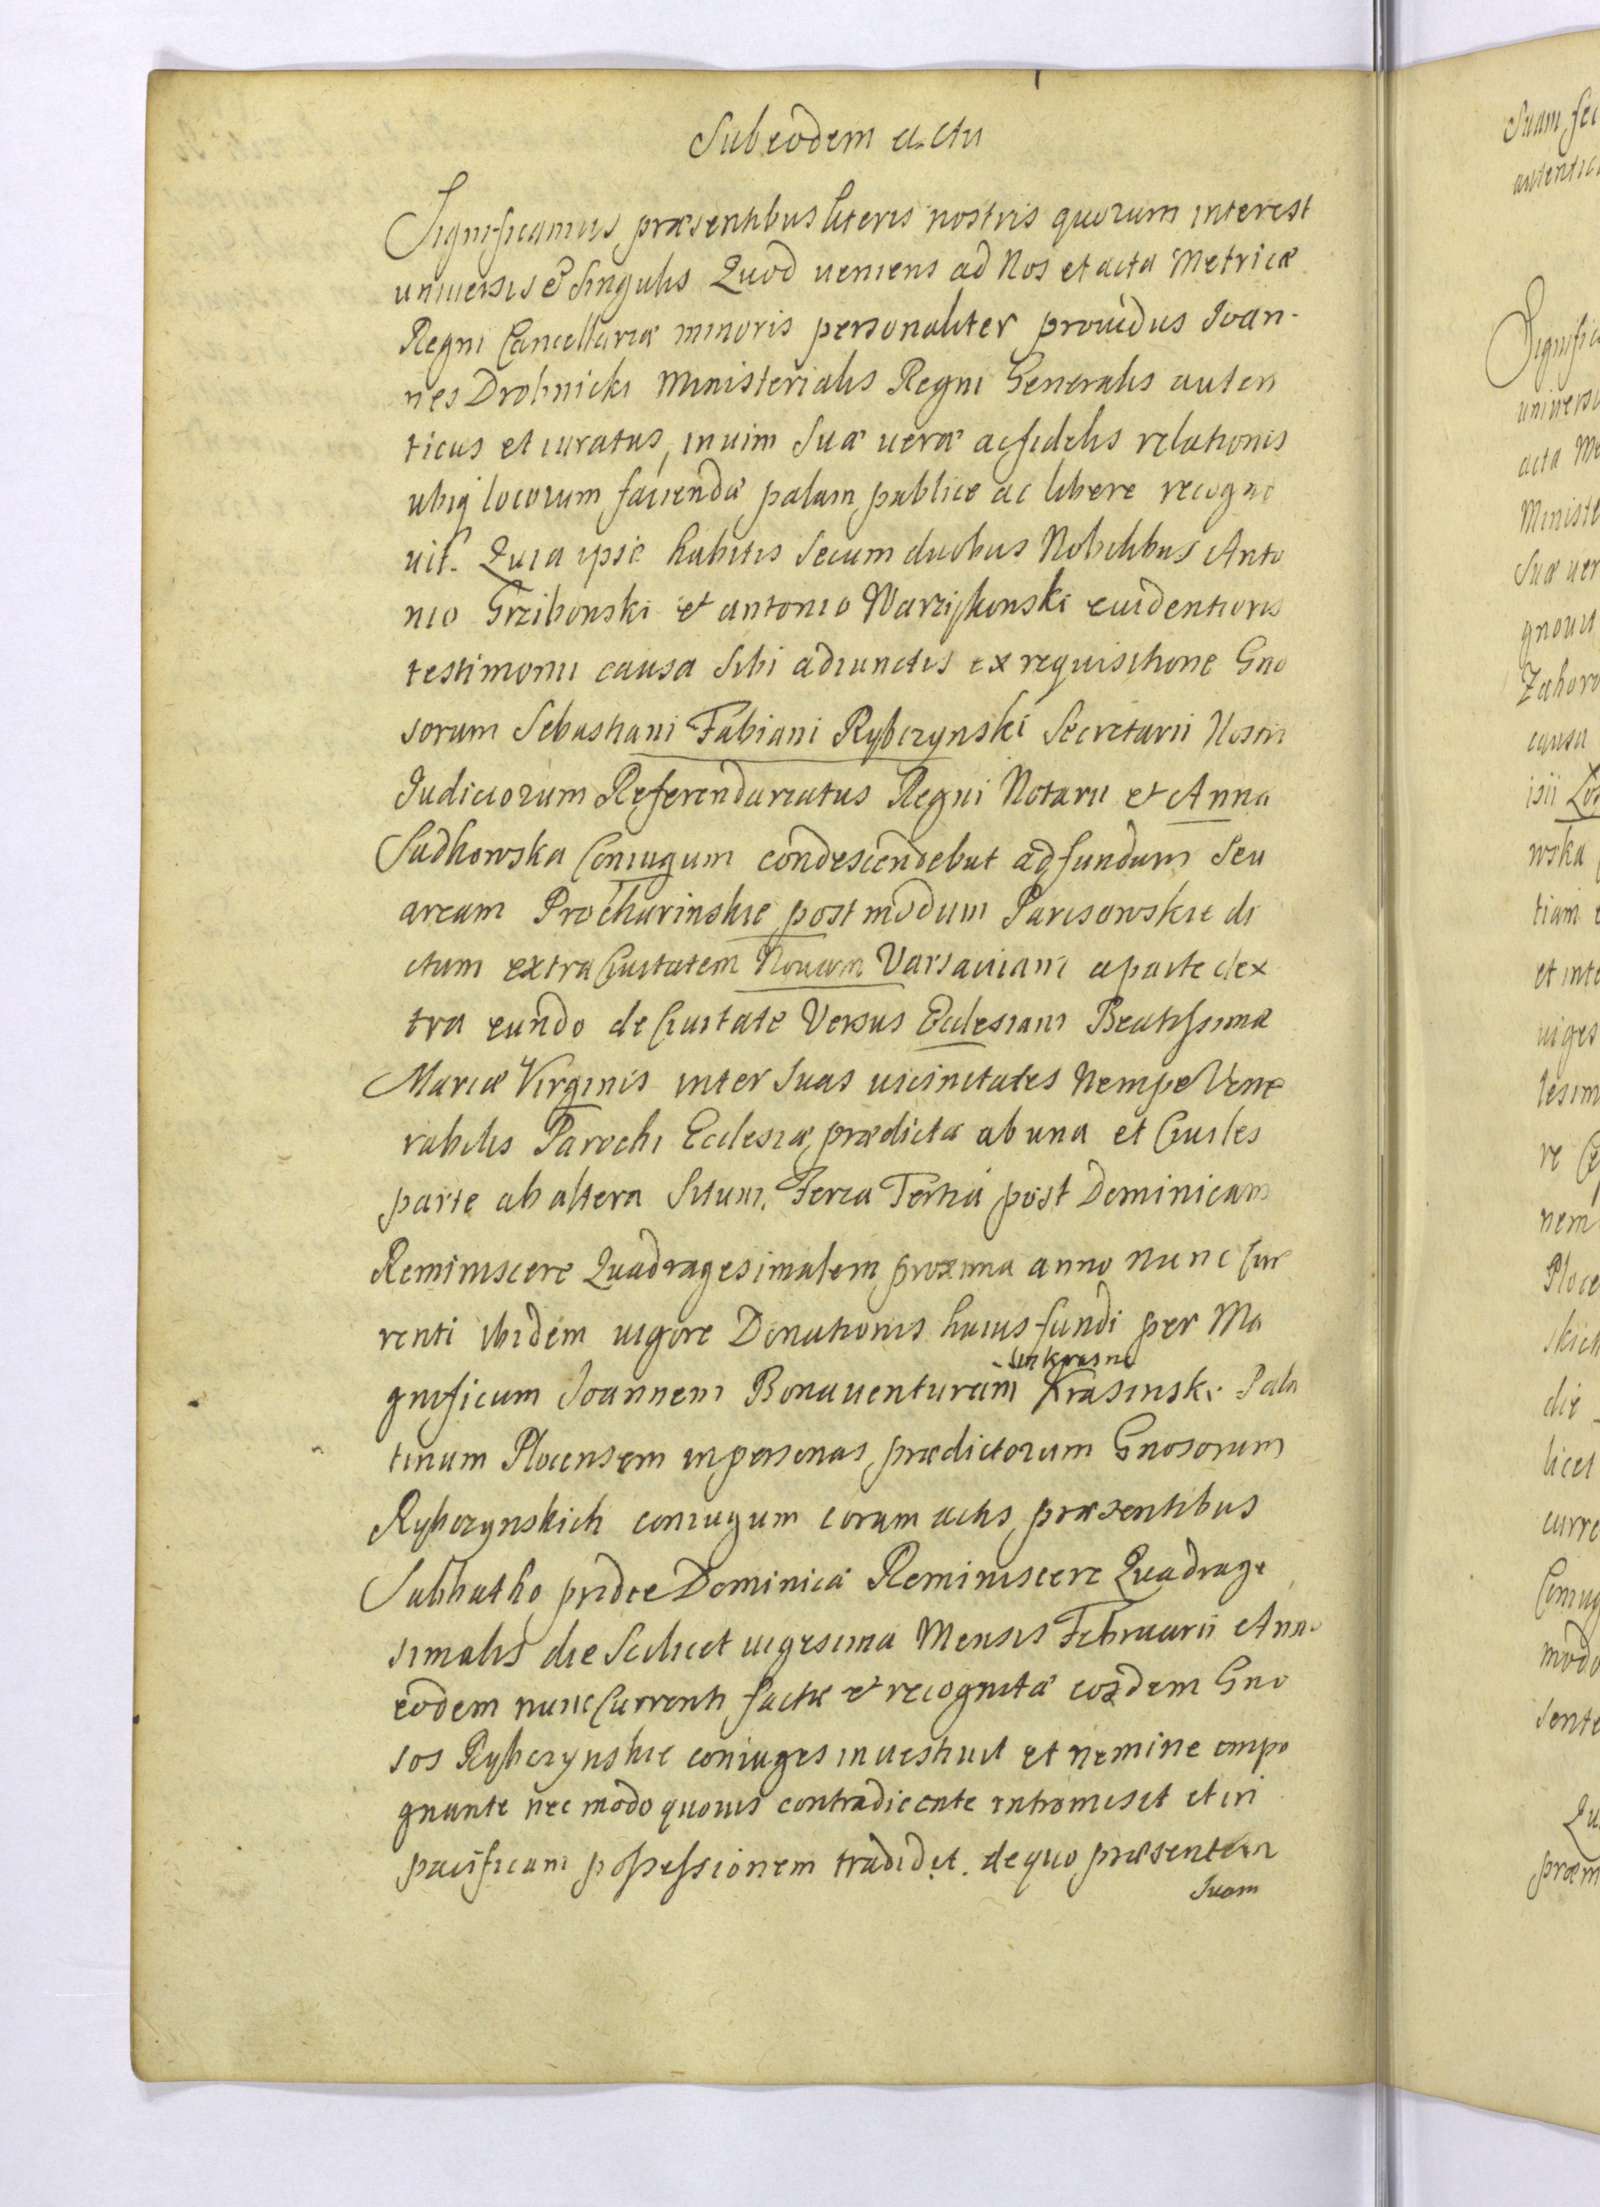 Sub eodem actu
Significamus præsentibus literis nostris quorum interest
uniuersis & singulis Quod ueniens ad Nos et acta Metricæ
Regni Cancellariæ minoris personaliter prouidus Joan-
nes Drobnicki Ministerialis Regni Generalis auten
ticus et iuratus, in uim Suæ ueræ ac fidelis relationis
ubiq locorum faciendæ palam publice ac libere recogno
uit. Quia ipse habitis secum duobus Nobilibus Anto
nio Grzibonski et antonio euidentioris
testimonii causa sibi adiunctis ex requisitione Gno
sorum Sebastiani Fabiani Rybczynski Secretarii Nostri
Judiciorum Referendariatus Regni Notarii et Anna
Sudkowska Coniugum condescendebat ad fundum Seu
aream postmodum Parisowskie di
ctum extra Ciuitatem Nouam Varsauiam a parte dex
tra eundo de Ciuitate Versus Ecclesiam Beatissimæ
Mariæ Virginis inter suas uicinitates Nempe Vene
rabilis Parochi Ecclesiæ prædictæ ab una et Ciuiles
parte ab altera Situm. Feria Tertia post Dominicam
Reminiscere Quadragesimalem proxima anno nunc cur
renti ibidem uigore Donationis huius fundi per Ma
gnificum Joannem Bonauenturam de Krasne Krasinski Pala
tinum Plocensem in personas prædictorum Gnosorum
Rybczynskich coniugum coram actis præsentibus
Sabbatho pridie Dominicæ Reminiscere Quadrage
simalis die Scilicet uigesima Mensis Februarii Anno
eodem nunc Currenti factæ et recognitæ eosdem Gno
sos Rybczynskie coniuges inuestiuit et nemine impu
gnante nec modo quouis contradicente intromisit et in
pacificam possessionem tradidit. de quo præsentem
Suam
Suam
acta
qnouit
causa
isii
wska
tiam
et
uiges
re
nem
die
licet
curre
modo
præm